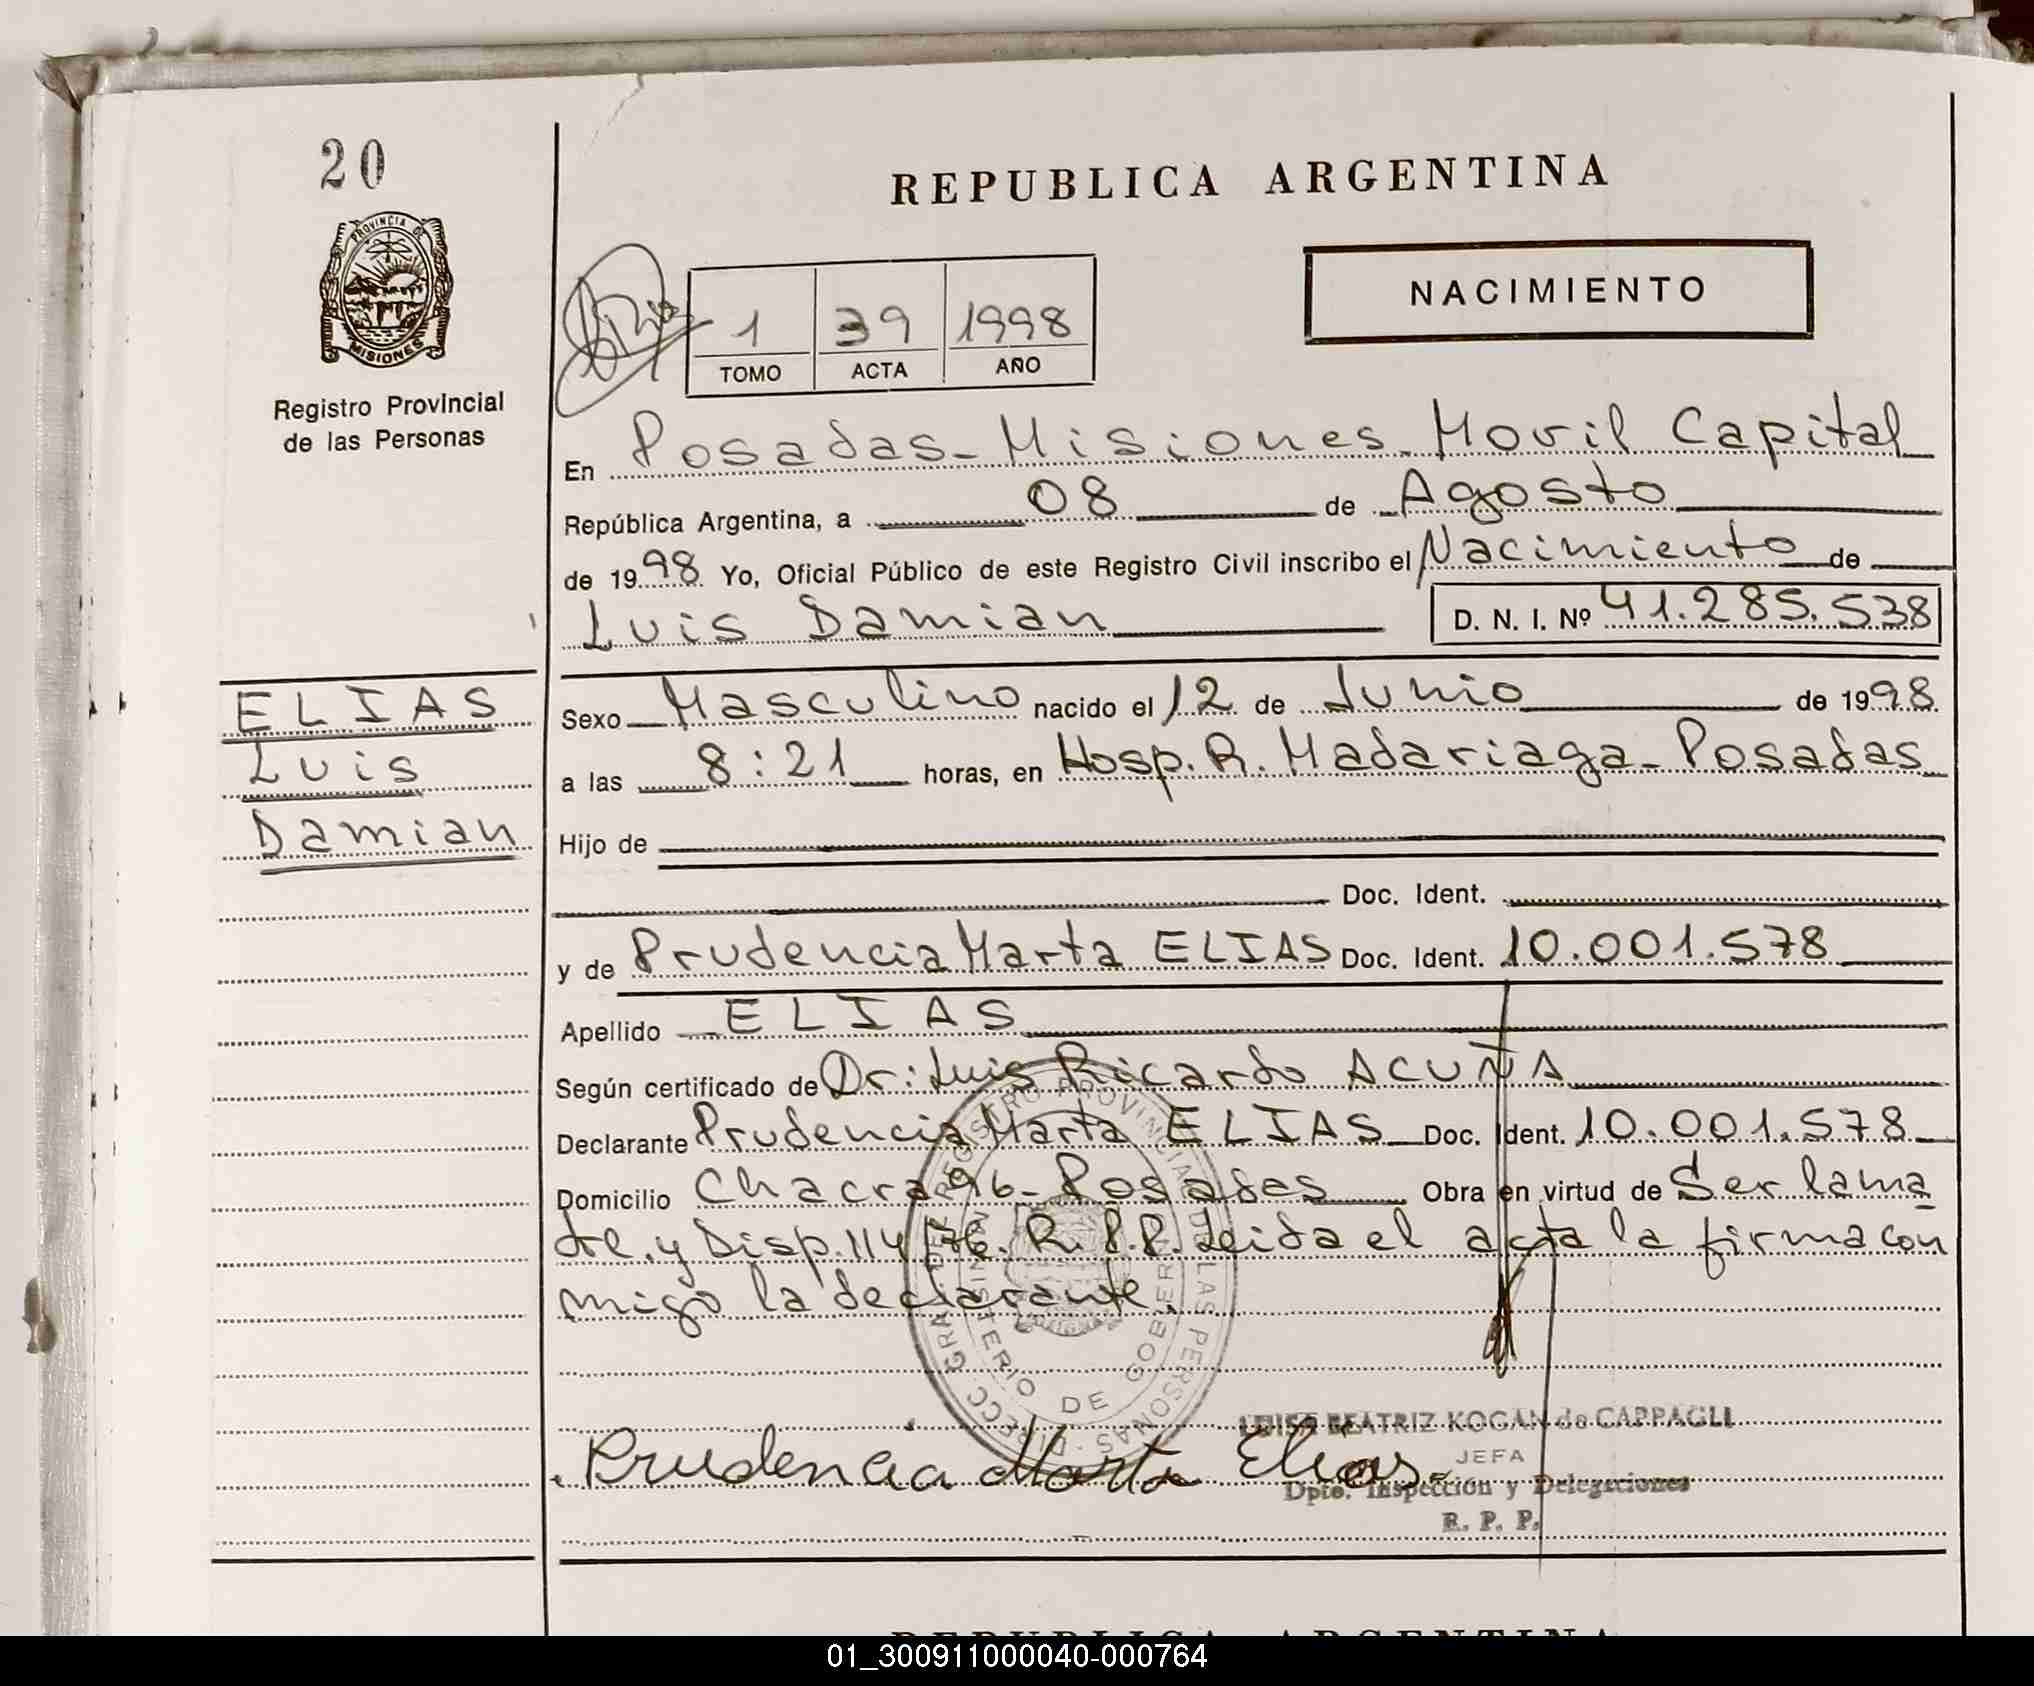 20
REPUBLICA ARGENTINA
PROVINCIA DE
MISIONES
Registro Provincial
de las Personas
NACIMIENTO
1 39 1998
TOMO ACTA AÑO
En Posadas - Misiones. Movil Capital
República Argentina, a 08 de Agosto
de 1998 Yo, Oficial Público de este Registro Civil inscribo el Nacimiento de
Luis Damian D. N. I. Nº 41.285.538
ELIAS
Luis
Damian
Sexo Masculino nacido el 12 de Junio de 1998.
a las 8:21 horas, en Hosp. R. Madariaga - Posadas
Hijo de
Doc. Ident.
y de Prudencia Marta ELIAS Doc. Ident. 10.001.578
Apellido ELIAS
Según certificado de Dr: Luis Ricardo ACUÑA
Declarante Prudencia Marta ELIAS Doc. Ident. 10.001.578
Domicilio Chacra 96 - Posadas Obra en virtud de Ser la ma
dre. y Disp. 114/76. R.P.P. Leida el acta la firma con
migo la declarante.
DIRECC. GRAL. DEL REGISTRO PROVINCIAL DE LAS PERSONAS
MINISTERIO DE GOBIERNO
Prudencia Marta Elias.
LUISA BEATRIZ KOGAN de CAPPAGLI
JEFA
Dpto. Inspección y Delegaciones
R. P. P.
REPUBLICA ARGENTINA
01_300911000040-000764